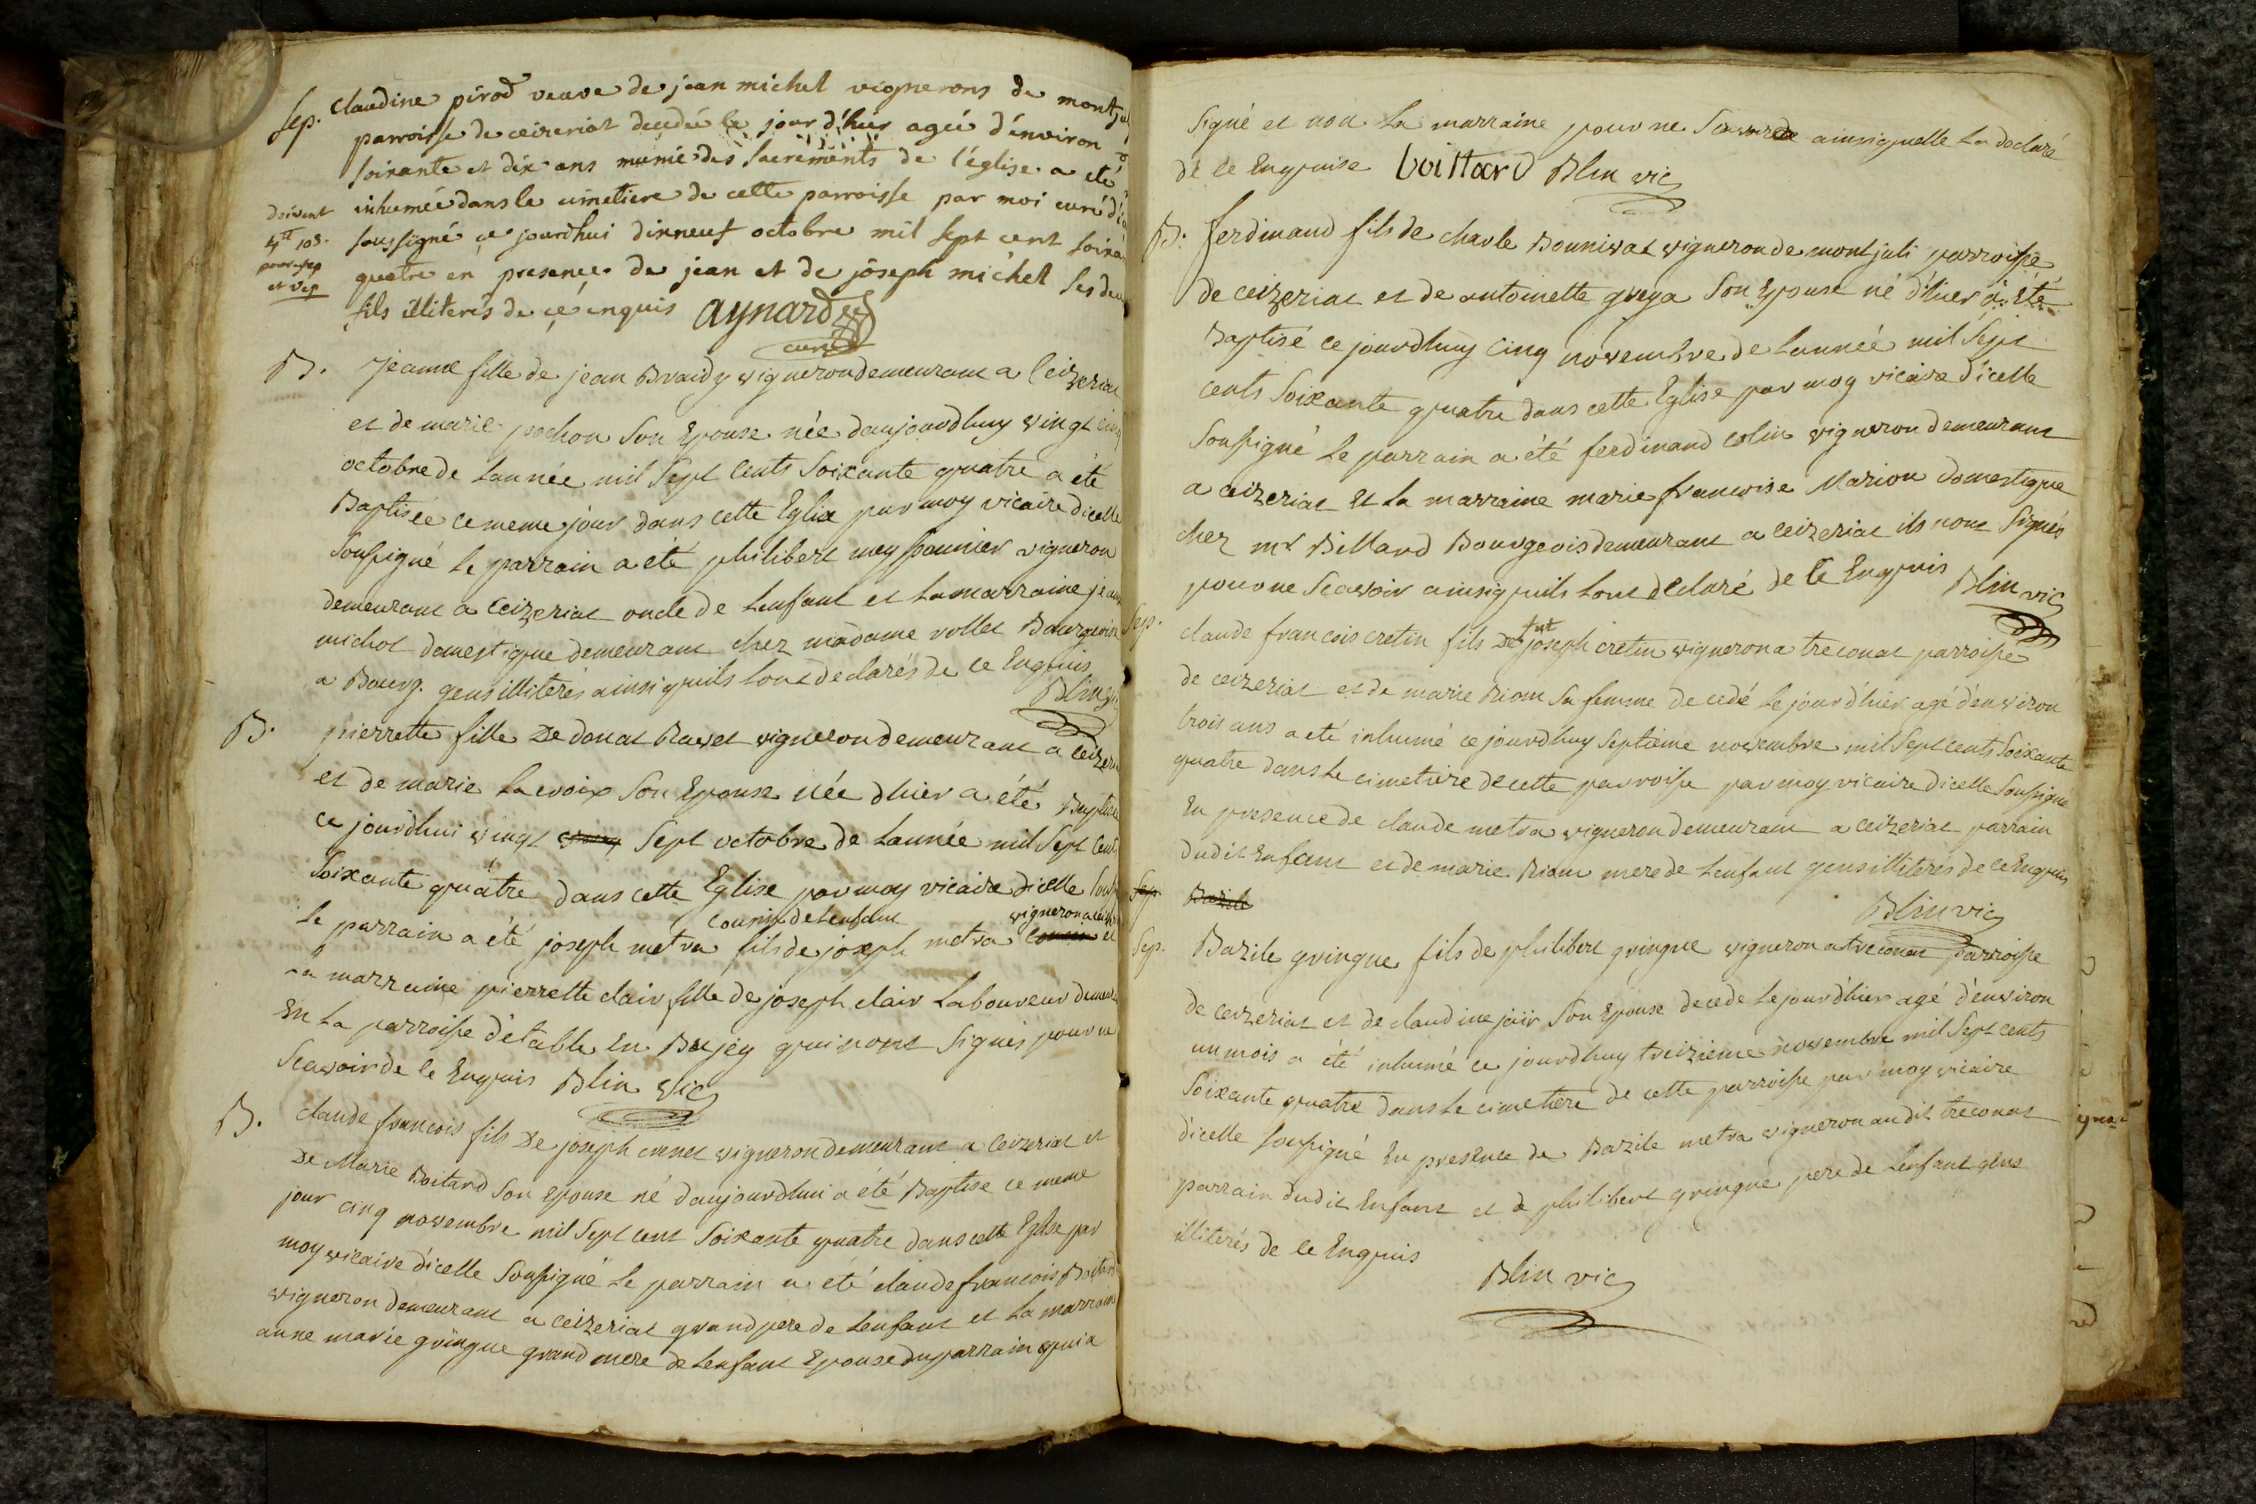 Sep. Claudine pirod veuve de jean michel vignerons de montjuli
parroisse de ceizeriat decedée le jour d'hier agée d'environ
soixante et dix ans munie des sacrements de l'église a été
inhumée dans le cimetiere de cette parroisse par moi curé
doivent
soussigné ce jourdhui dixneuf octobre mil sept cent soixa
4ᵗᵗ 10s.
quatre en presence de jean et de joseph michel ses deux
pour sep
et vep
fils illiterés de ce enquis aynard
curé
B. Jeanne fille de jean Braidy vigneron demeurant a Ceizeriat
et de marie pochon son Epouse née daujourdhuy vingt cinq
octobre de lannée mil Sept Cents Soixante quatre a été
Baptisée ce meme jour dans cette Eglise par moy vicaire dicelle
Soussigné le parrain a été philibert meyssonnier vigneron
demeurant a Ceizeriat oncle de lenfant et la marraine jeanne
michol domestique demeurant chez madame vollet Bourgeoise
a Bourg. gens illiterés ainsi quils lont declarés de ce Enquis
Blin vic
B. pierrette fille De donat Ravet vigneron demeurant a ceizeriat
et de marie Lacroix Son Epouse née dhier a été Baptisée
ce jourdhui vingt Sept octobre de lannée mil Sept Cent
Soixante quatre dans cette Eglise par moy vicaire dicelle Souss
cousin de lenfant vigneron a
le parrain a été joseph metra fils de joseph metra et
la marraine pierrette clair fille de joseph clair Laboureur demeur
En la parroisse d'etable En Bujey qui nont Signés pour ne
Scavoir de ce Enquis Blin vic
B. claude francois fils De joseph vigneron demeurant a Ceizeriat et
De Marie Boitard Son Epouse né daujourdhui a été Baptisé ce meme
jour cinq novembre mil Sept cent Soixante quatre dans cette Eglise par
moy vicaire dicelle Soussigné le parrain a été claude francois Boitard
vigneron demeurant a ceizeriat grand pere de lenfant et la marraine
anne marie gringue grand mere de lenfant Epouse du parrain qui a
Signé et non la marraine pour ne Scavoir ainsi quelle la declaré
de ce Enquise boittard Blin vic
B. ferdinand fils de charle Bonnivat vigneron de montjuli parroisse
de ceizeriat et de antoinette Son Epouse né d'hier a été
Baptisé ce jourdhuy Cinq novembre de lannée mil Sept
cents Soixante quatre dans cette Eglise par moy vicaire dicelle
Soussigné le parrain a été ferdinand colin vigneron demeurant
a ceizeriat Et la marraine marie francoise Marion domestique
chez mr Billard Bourgeois demeurant a ceizeriat ils nont Signés
pour ne Scavoir ainsi quils lont declaré de ce Enquis Blin vic
Sep. claude francois cretin fils de fut joseph cretin vigneron a treconat parroisse
de ceizeriat et de marie Riom sa femme decedé le jour d'hier agé d'environ
trois ans a eté inhumé ce jourdhuy Septième novembre mil Sept cents Soixante
quatre dans le cimetière de cette parroisse par moy vicaire dicelle Soussigné
En presence de claude metra vigneron demeurant a ceizeriat parrain
dudit Enfant et de marie Riom mere de lenfant gens illiterés de ce Enquis
Sep. Bazile
Blin vic
Sep. Bazile gringue fils de philibert gringue vigneron a treconat parroisse
de ceizeriat et de claudine jair Son Epouse decede le jour d'hier agé d'environ
un mois a été inhumé ce jourdhuy treizieme novembre mil Sept cents
Soixante quatre dans le cimetiere de cette parroisse par moy vicaire
dicelle Soussigné En presence de Bazile metra vigneron audit treconat
parrain dudit Enfant et de philibert gringue pere de lenfant gens
illiterés de ce Enquis
Blin vic